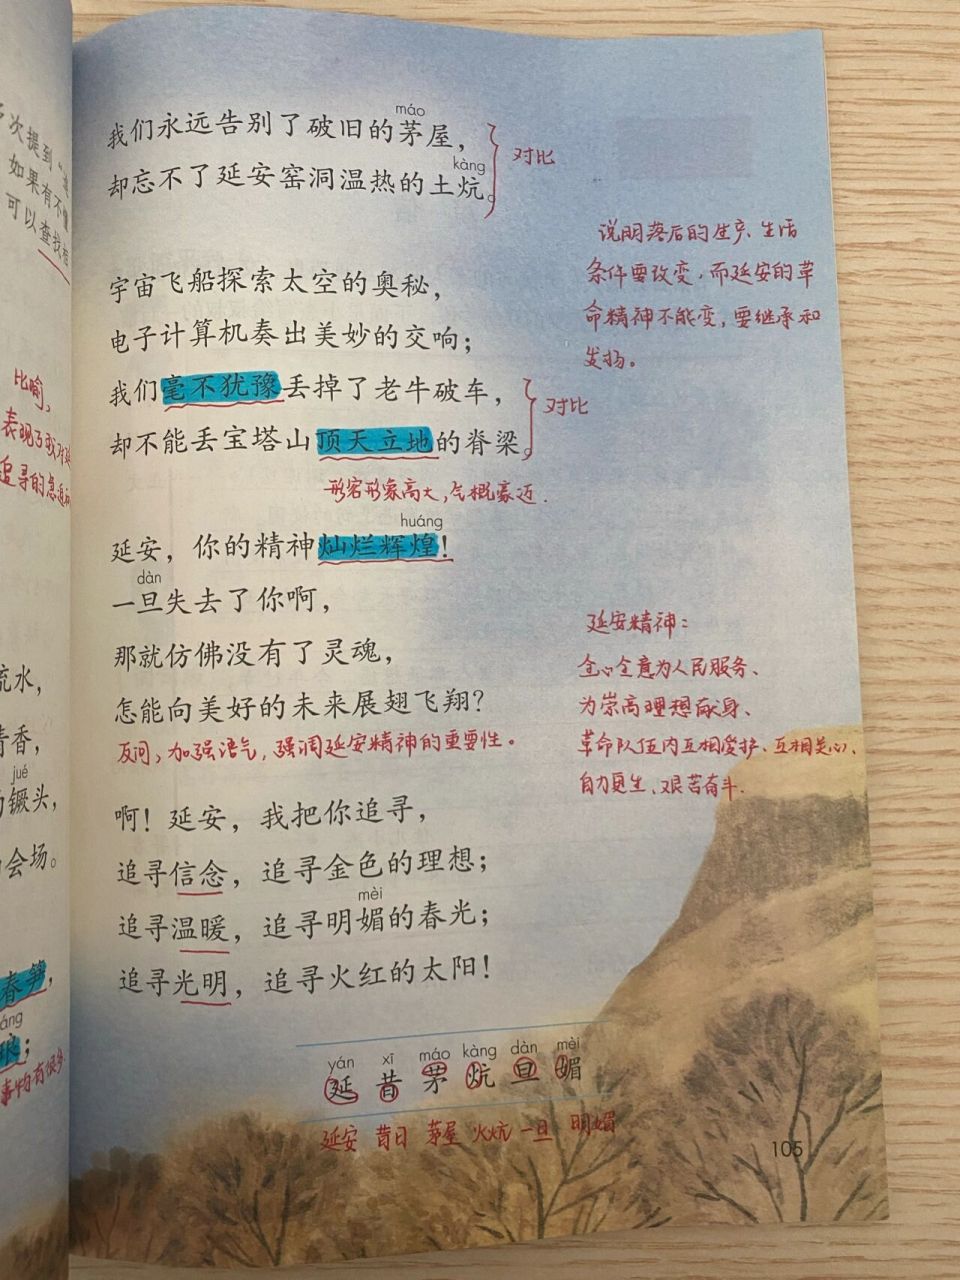 多次提到“
如果有不懂
可以查找
比喻，
表现了我对延
追寻的急迫
流水，
清香，
jué
的镢头，
的会场。
春笋，
琅；
事物有很多
máo
我们永远告别了破旧的茅屋，
kàng
却忘不了延安窑洞温热的土炕。
对比
说明落后的生产、生活
条件要改变，而延安的革
命精神不能变，要继承和
发扬。
宇宙飞船探索太空的奥秘，
电子计算机奏出美妙的交响；
我们毫不犹豫丢掉了老牛破车，
却不能丢宝塔山顶天立地的脊梁。
对比
形容形象高大，气概豪迈.
huáng
延安，你的精神灿烂辉煌！
dàn
一旦失去了你啊，
那就仿佛没有了灵魂，
怎能向美好的未来展翅飞翔？
反问，加强语气，强调延安精神的重要性。
延安精神：
全心全意为人民服务、
为崇高理想献身、
革命队伍内互相爱护、互相关心、
自力更生、艰苦奋斗.
啊！延安，我把你追寻，
追寻信念，追寻金色的理想；
mèi
追寻温暖，追寻明媚的春光；
追寻光明，追寻火红的太阳！
yán xī máo kàng dàn mèi
延 昔 茅 炕 旦 媚
延安 昔日 茅屋 火炕 一旦 明媚
105